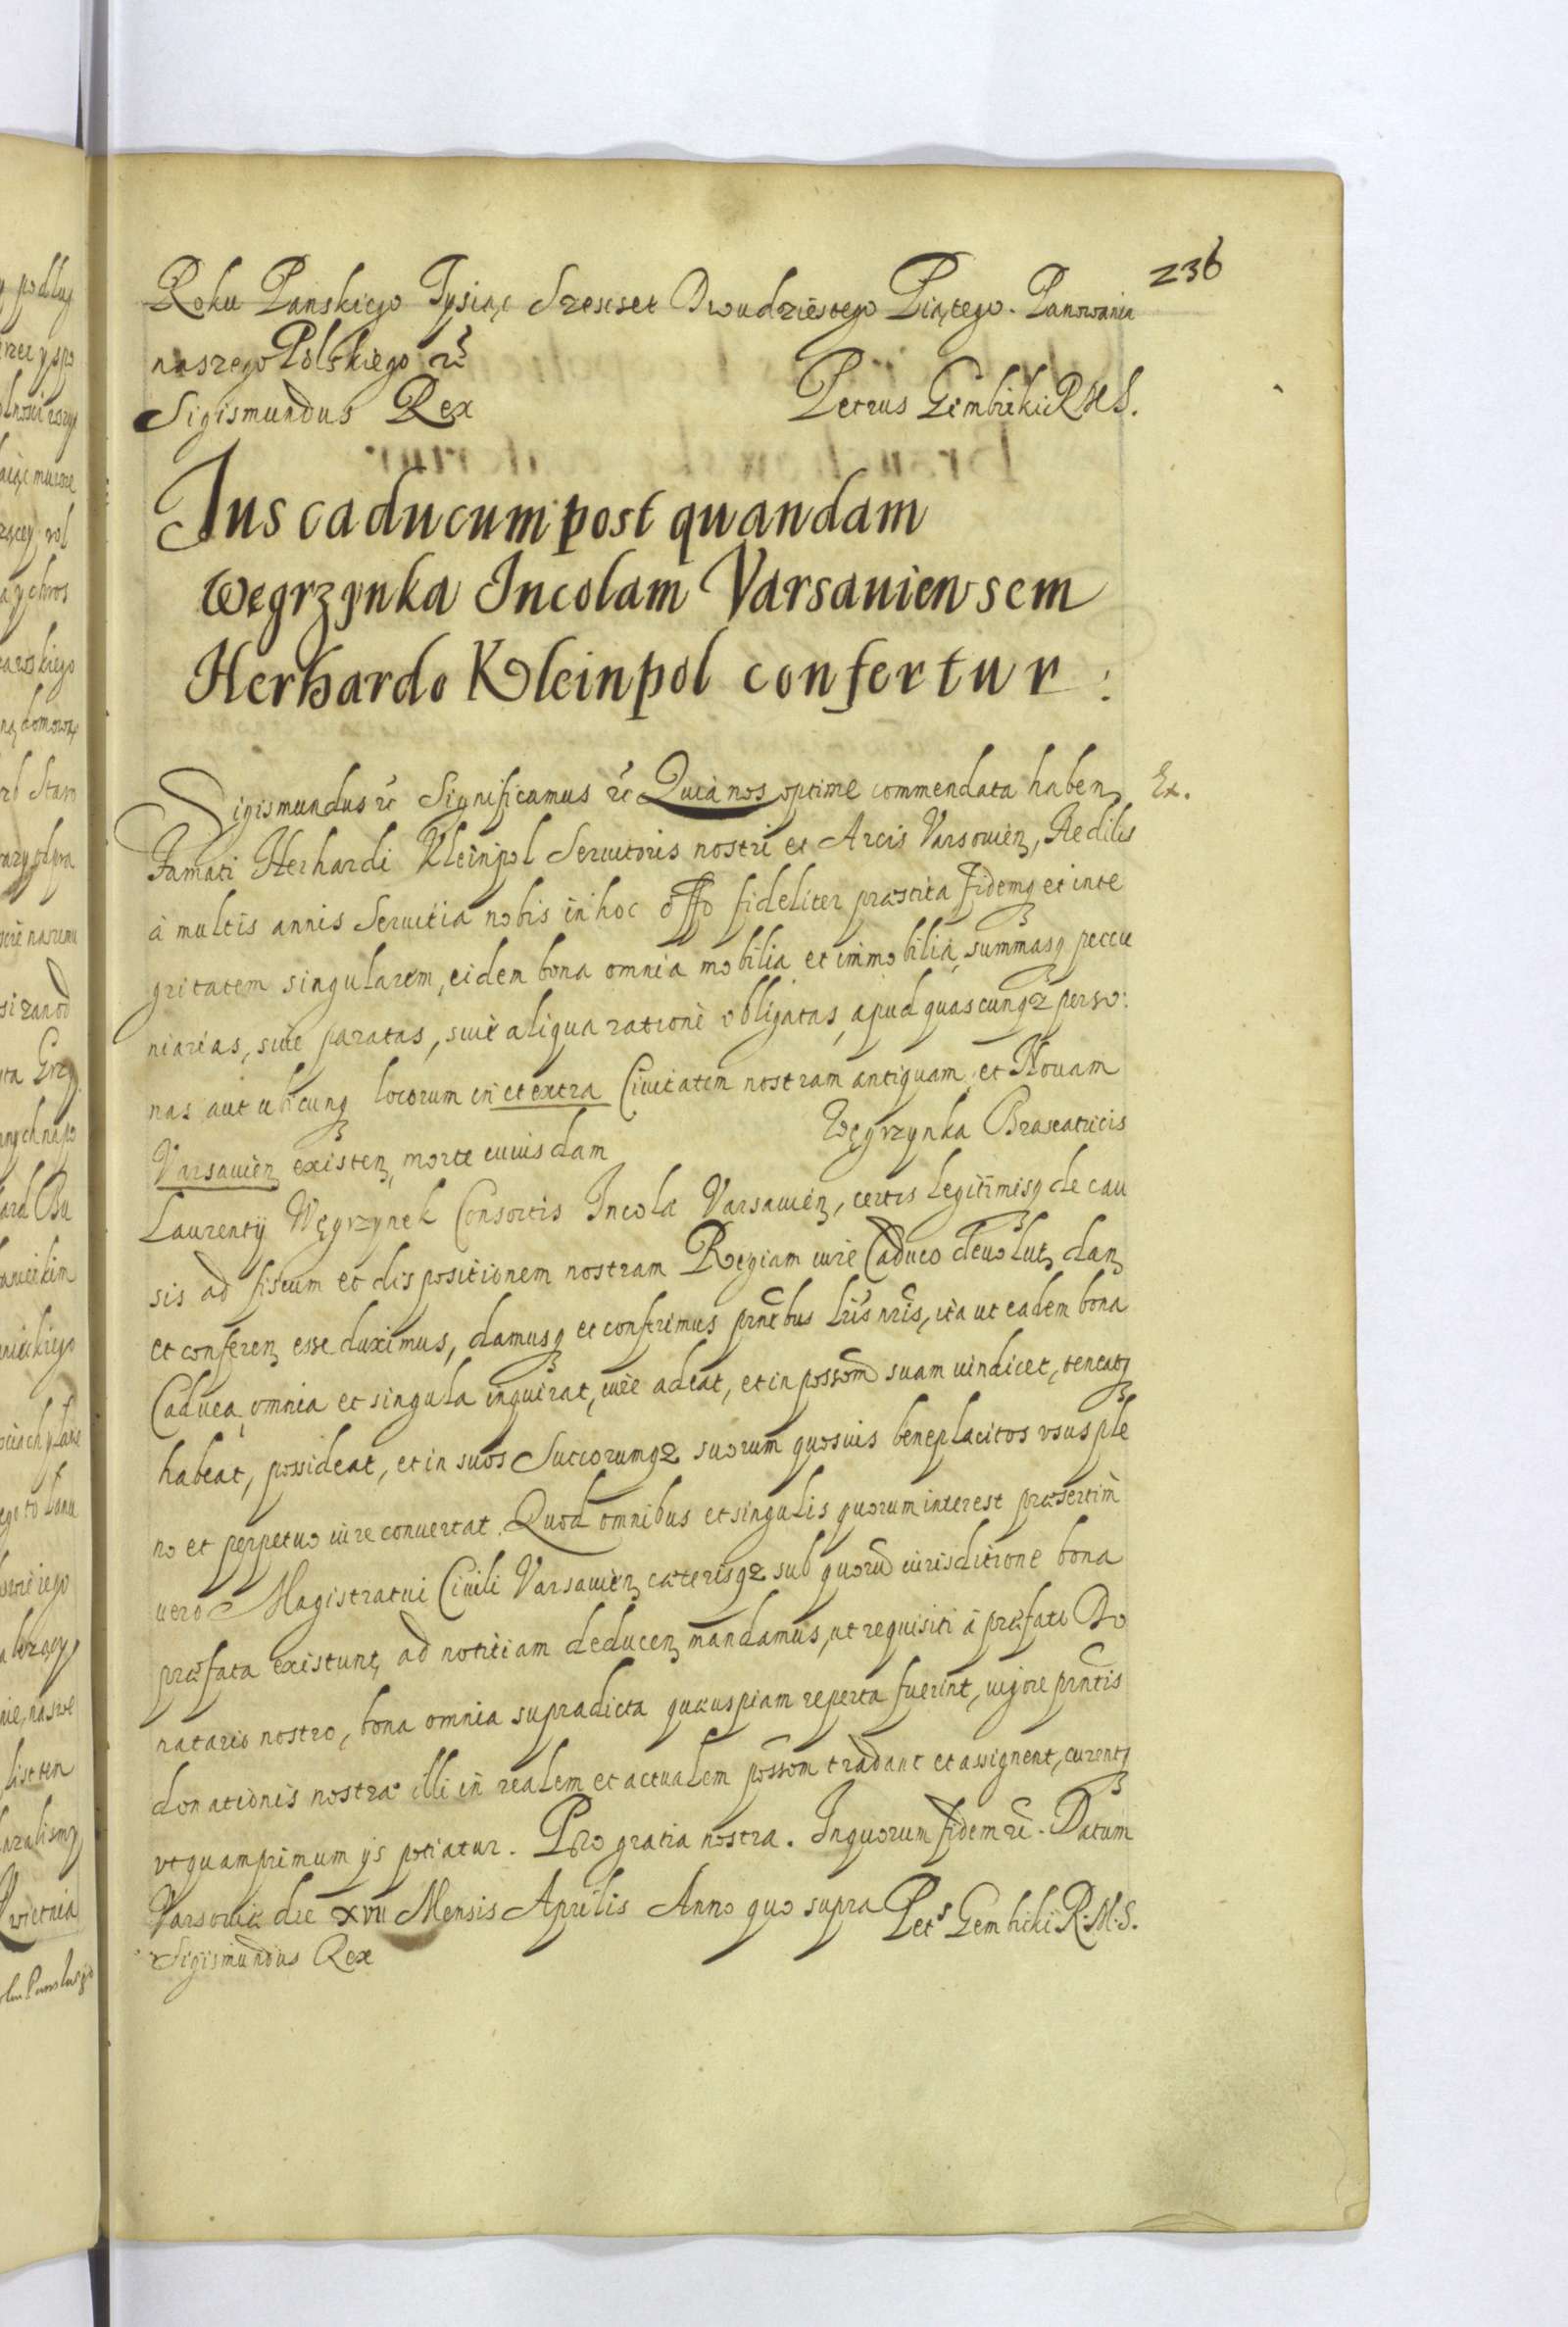 236
Roku Panskiego Tysiąc Szescset Dwudziestego Piątego. Panowania
naszego Polskiego &c
Sigismundus Rex Petrus Gembicki R M S.
Ius caducum post quandam
Węgrzynka Incolam Varsauiensem
Herhardo Kleinpol confertur:
Sigismundus &c Significamus &c Quia nos optime commendata haben Ex.
Famati Herhardi Kleinpol Seruitoris nostri et Arcis Varsouien, Aedilis
à multis annis Seruitia nobis in hoc offo fideliter præstita fidemq et inte
gritatem singularem, eidem bona omnia mobilia et immobilia, summasq peccu
niarias, siue paratas, siue aliqua ratione obligatas, apud quascunqz perso:
nas aut ubicunq locorum in et extra Ciuitatem nostram antiquam et Nouam
Varsauien existen, morte cuiusdam Węgrzynka Braseatricis
Laurentij Węgrzynek Consortis Incolæ Varsauien, certis legitimisq de cau
sis ad fiscum et dispositionem nostram Regiam iure Caduco deuolut, dan
et conferen esse duximus, damusq et conferimus pntibus Lris nris, ita ut eadem bona
Caduca, omnia et singula inquirat, iure adeat, et in possom suam uindicet, teneatq
habeat, possideat, et in suos Succorumqz suorum quosuis beneplacitos usus ple
no et perpetuo iure conuertat. Quod omnibus et singulis quorum interest præsertim
uero Magistratui Ciuili Varsauien cæterisqz sub quorū iurisditione bona
præfata existunt, ad notitiam deducen mandamus, ut requisiti à præfato Do
natario nostro, bona omnia supradicta quæuspiam reperta fuerint, uigore pntis
donationis nostræ illi in realem et actualem possom tradant et assignent, curentq
ut quamprimum ijs potiatur. Pro gratia nostra. In quorum fidem &c. Datum
Varsouiæ die XVII Mensis Aprilis Anno quo supra Pets Gembicki R. M. S.
Sigismundus Rex